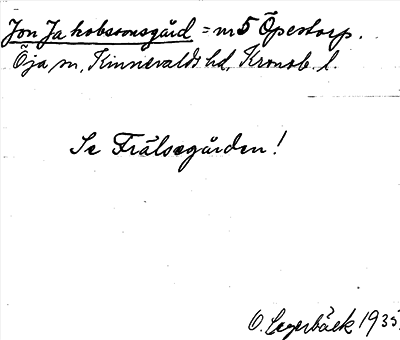 Jon Jakobsonsgård = nr 5 Öpestorp.
Öja sn, Kinnevalds hd, Kronob. l.
Se Frälsegården!
O. Legerbäck 1935.